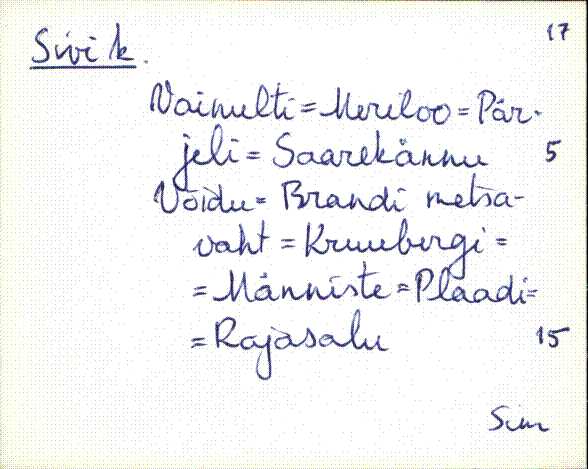 17
Sivik.
Vainulti = Meriloo = Pär-
jeli = Saarekännu 5
Võidu = Brandi metsa-
vaht = Kruubergi =
= Männiste = Plaadi =
= Rajasalu 15
Sim